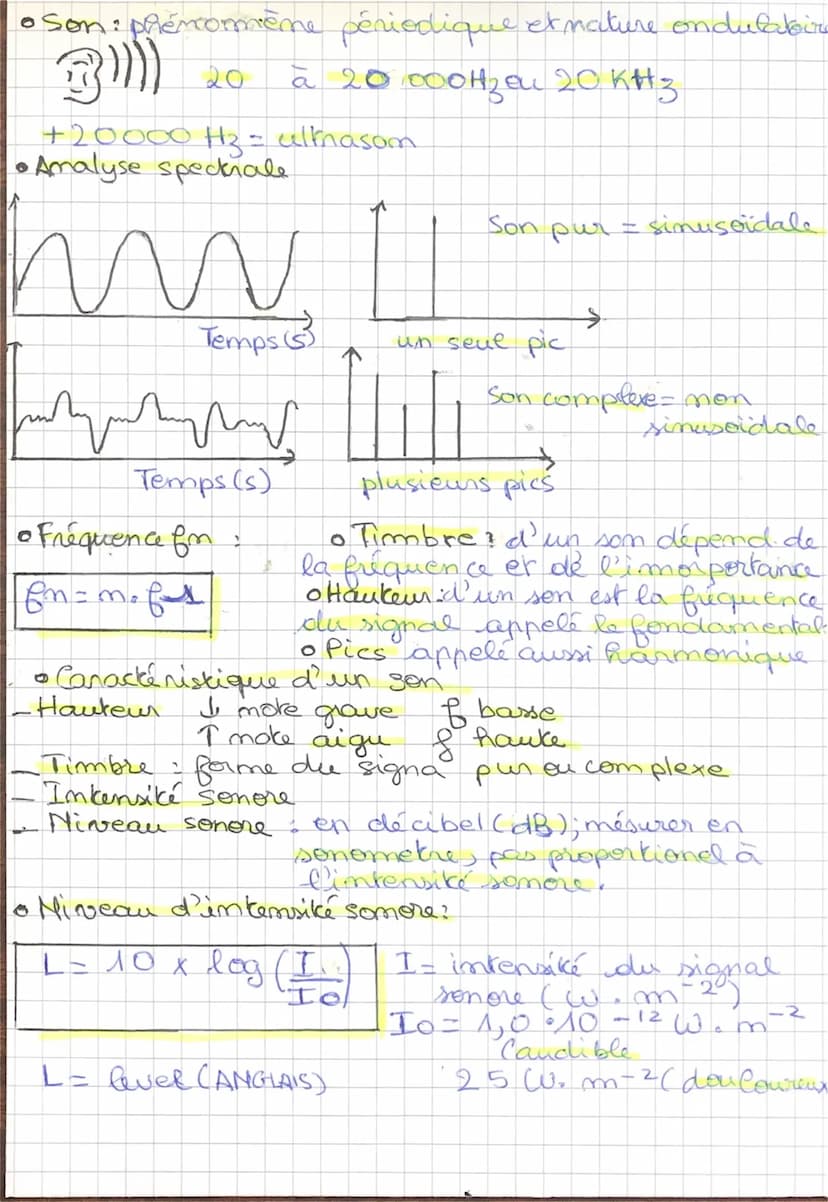 • Son : phénomième périedique et nature ondulatoire
20 à 20 000Hz ou 20 KHz
+20000 Hz = ultrason
• Analyse spectrale
Son pur = sinusoïdale
Temps (s)
un seul pic
Son complexe = non
sinusoïdale
Temps (s)
plusieurs pics
• Fréquence fn :
fn = n . f 1
• Timbre : d'un son dépend de
la fréquence et de l'imorportance
• Hauteur : d'un son est la fréquence
du signal appelé le fondamental.
• Pics appelé aussi harmonique
• Caractéristique d'un son
- Hauteur ↓ note grave f basse
↑ note aigu f haute
- Timbre : forme du signa pur ou complexe
- Intensité sonore
- Niveau sonore : en décibel (dB) ; mésurer en
sonometre, pas proportionel à
l'intensité sonore.
• Niveau d'intensité sonore :
L = 10 x log (I/I0)
I = intensité du signal
sonore (W . m-2)
I0 = 1,0 • 10 -12 W . m-2
(audible
L = level (ANGLAIS)
25 W. m-2 (douloureux